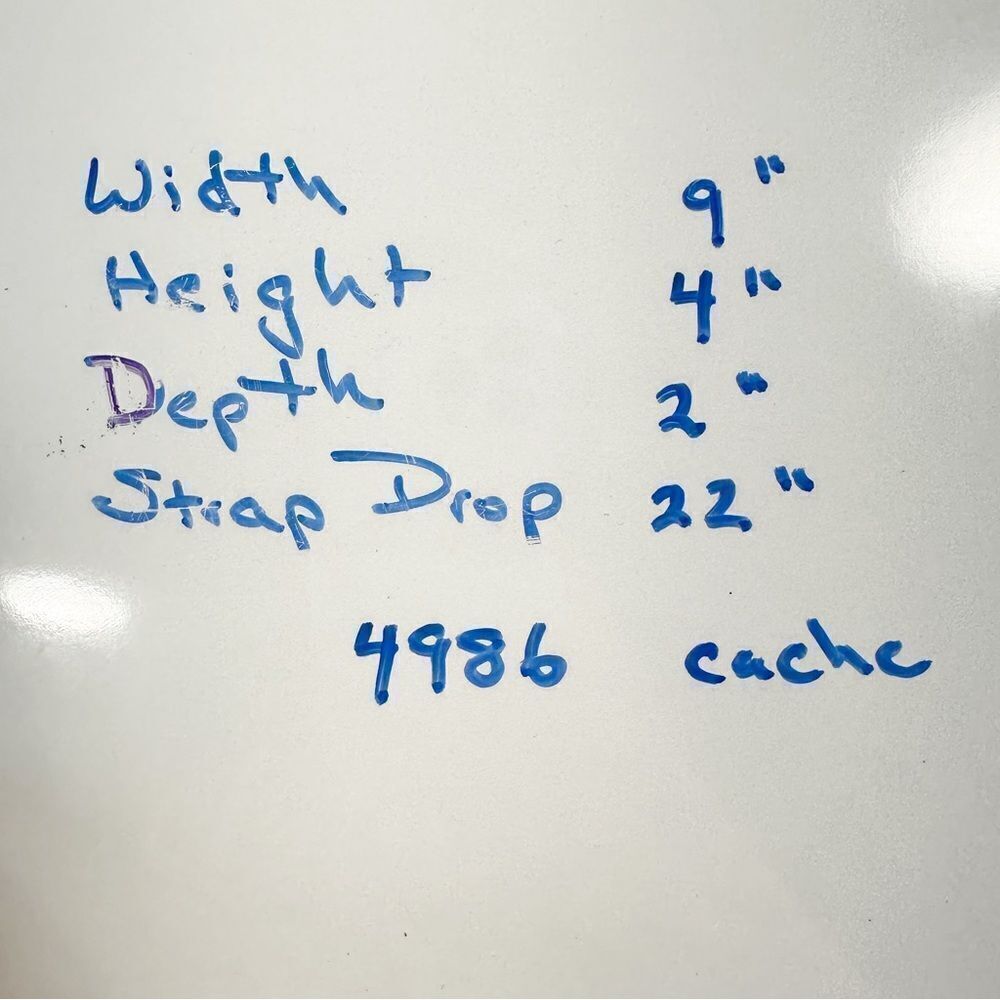 Width 9"
Height 4"
Depth 2"
Strap Drop 22"
4986 cache